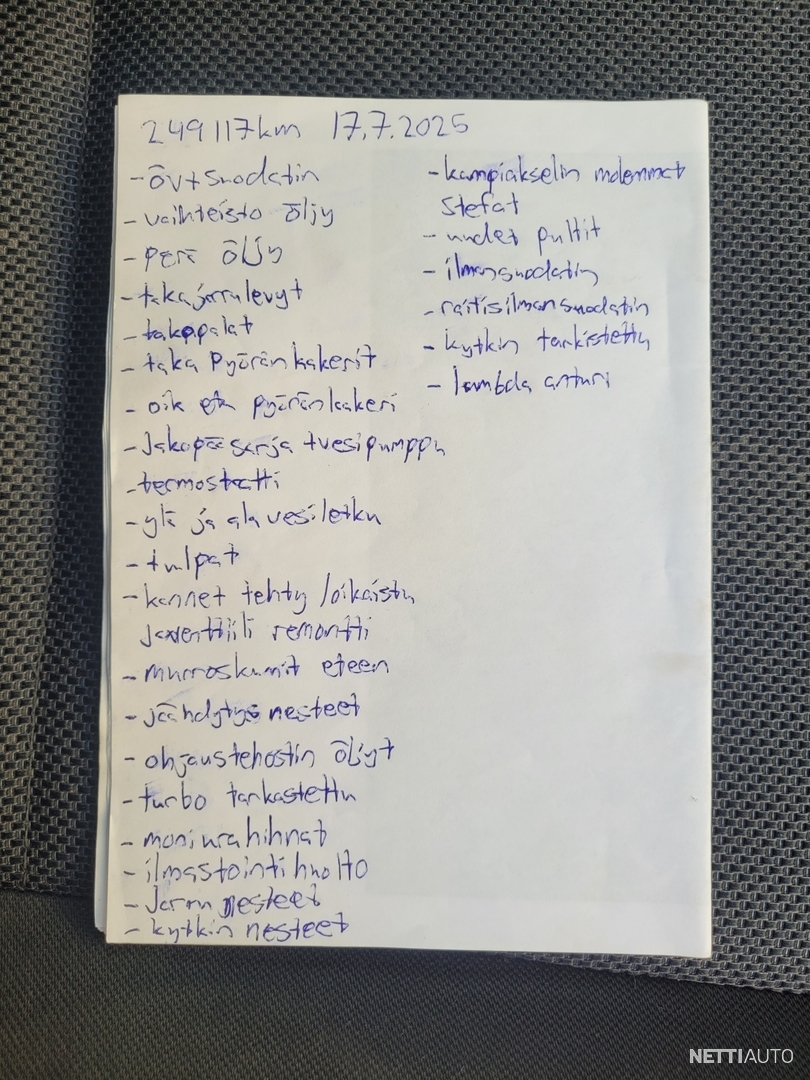 249117km 17.7.2025
- öv+suodatin
- vaihteisto öljy
- perä öljy
- takajarrulevyt
- takapalat
- taka pyöränlaakerit
- oik etu pyöränlaakeri
- Jakopääsarja +vesipumppu
- termostatti
- ylä ja ala vesiletku
- tulpat
- kannet tehty /oikaistu
ja venttiili remontti
- murroskumit eteen
- jäähdytys nesteet
- ohjaustehostin öljyt
- turbo tarkastettu
- moniurahihnat
- ilmastointihuolto
- Jarru nesteet
- kytkin nesteet
- kampiakselin molemmat
stefat
- uudet pultit
- ilmansuodatin
- raitisilmansuodatin
- kytkin tarkistettu
- lambda anturi
NETTIAUTO